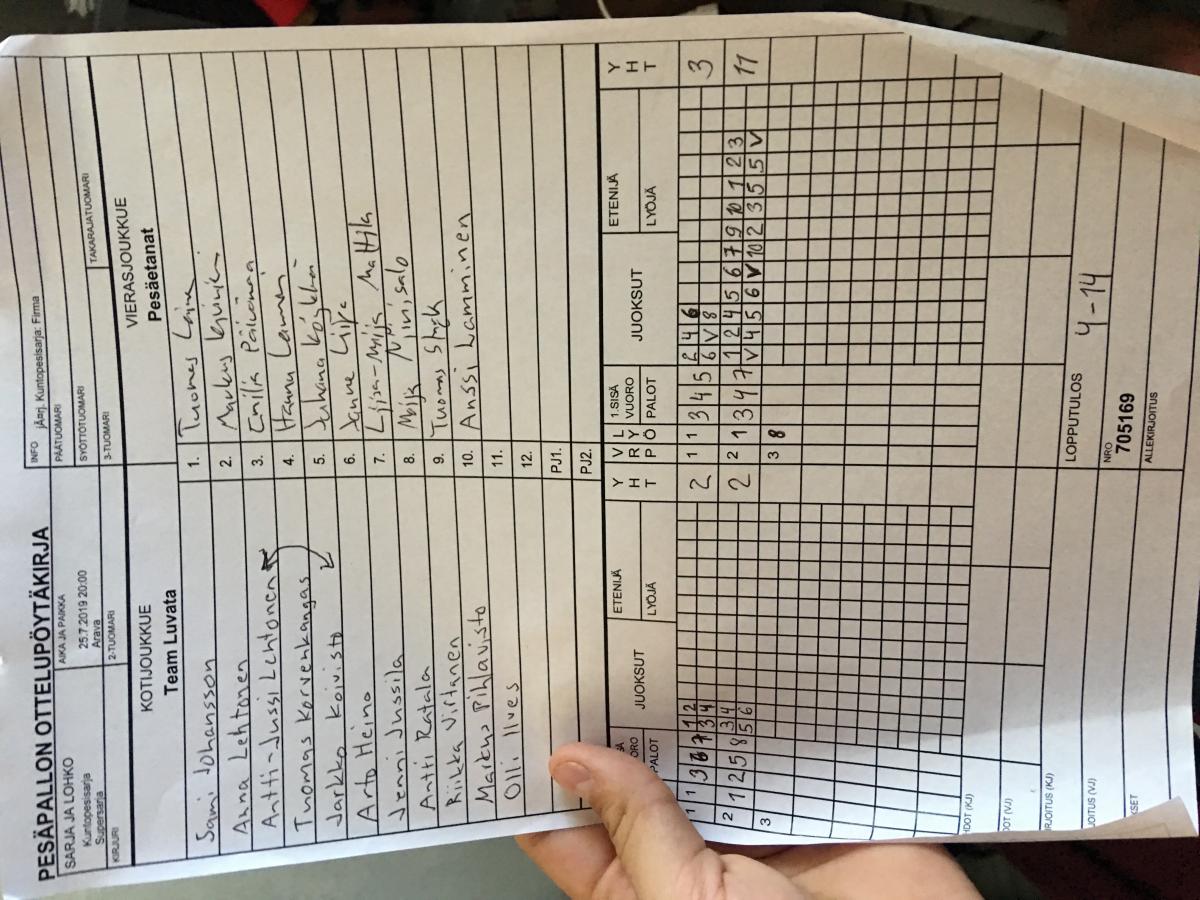 PESÄPALLON OTTELUPÖYTÄKIRJA
SARJA JA LOHKO
Kuntopesisarja
Supersarja
AIKA JA PAIKKA
25.7.2019 20:00
Arava
INFO jÄ¤rj. Kuntopesisarja: Firma
PÄÄTUOMARI
SYÖTTÖTUOMARI
TAKARAJATUOMARI
KIRJURI
2-TUOMARI
3-TUOMARI
KOTIJOUKKUE
Team Luvata
VIERASJOUKKUE
Pesäetanat
Sami Johansson
1. Tuomas Laine
Anna Lehtonen
2. Markus
Antti-Jussi Lehtonen
3. Emilia Päiviömaa
Tuomas Korvenkangas
4. Hannu Laminen
Jarkko Koivisto
5. Juhana
Arto Heino
6. Janne Lilja
Jenni Jussila
7. Liisa-Maija Mattila
Antti Ratala
8. Maija Niinisalo
Riikka Virtanen
9. Tuomas
Markus Pihlavisto
10. Anssi Lamminen
Olli Ilves
11.
12.
PJ1.
PJ2.
PALOT
JUOKSUT
ETENIJÄ
LYÖJÄ
YHT
VRP
LYÖ
1.SISÄ
VUORO
PALOT
JUOKSUT
ETENIJÄ
LYÖJÄ
YHT
1 1 3 6 7 1 2
3 4
2
1 1 3 4 5 6 4 6
6 V 8
3
2 1 2 5 8 3 4
5 6
2
2 1 3 4 7 1 2 4 5 6 7 9 10 1 2 3
V 4 5 6 V 10 2 3 5 5 V
11
3
3 8
LOPPUTULOS
4-14
NRO
705169
ALLEKIRJOITUS